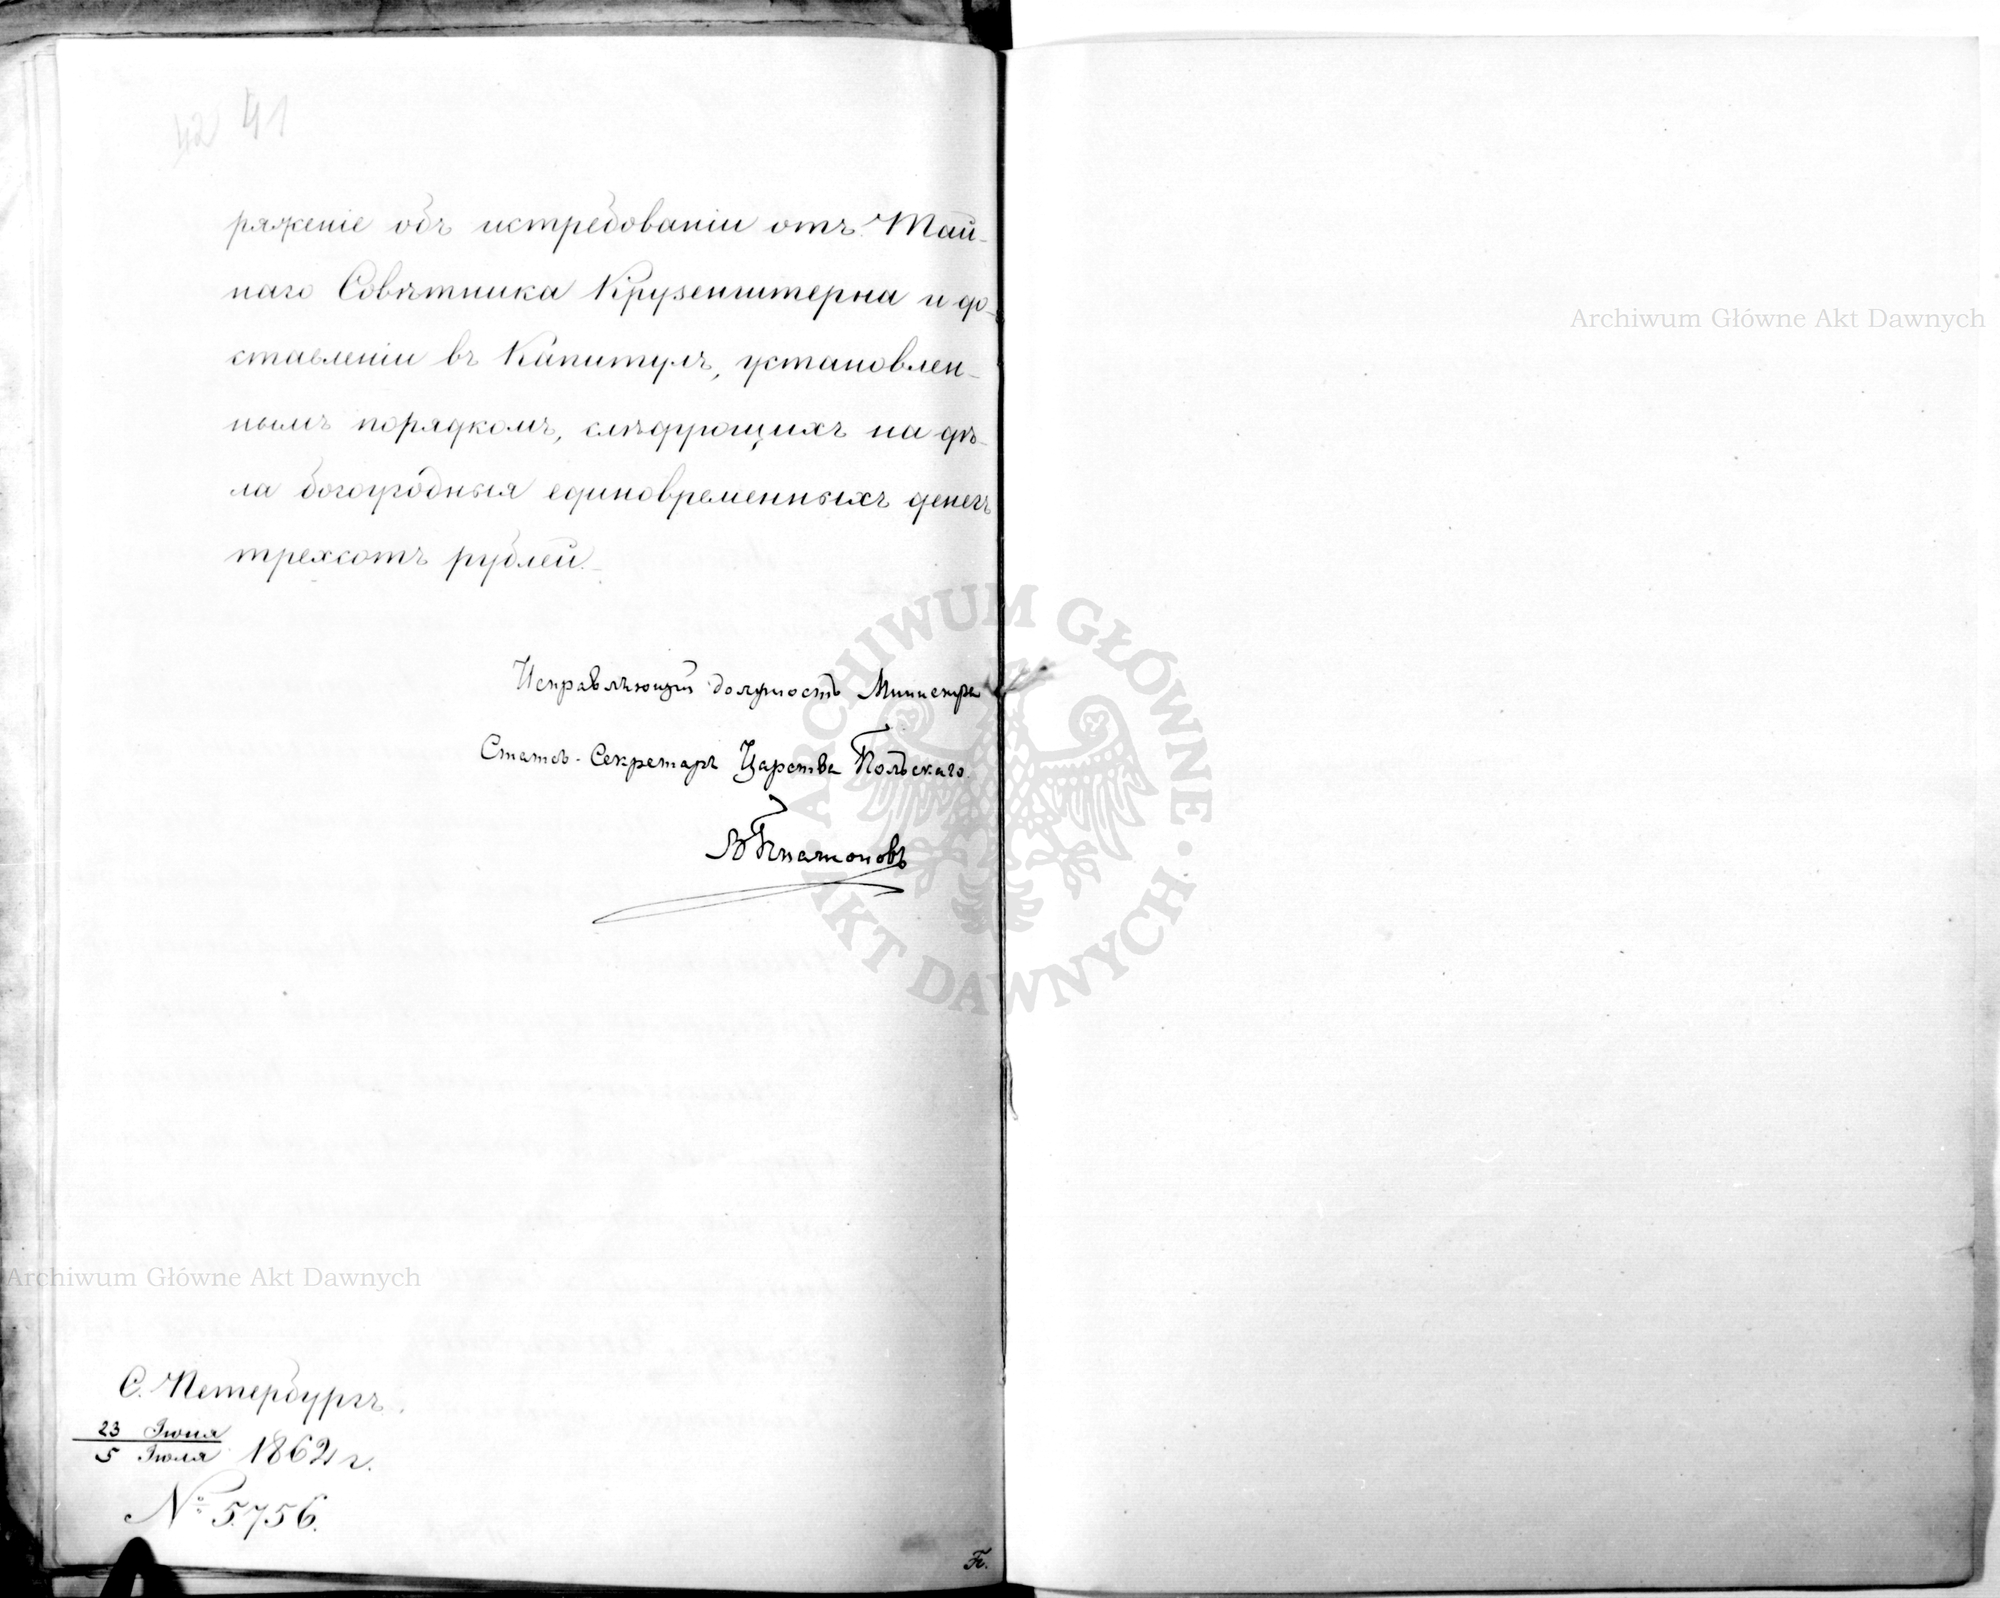 42 41
ряженіе объ истребованіи отъ Тай-
наго Совѣтника Крузенштерна и до-
ставленіи въ Капитулъ, установлен-
нымъ порядкомъ, слѣдующихъ на дѣ-
ла богоугодныя единовременныхъ денегъ
трехсотъ рублей.
Исправляющій должность Министра
Статсъ-Секретаря Царства Польскаго
В Платоновъ
С. Петербургъ.
23 Іюня
5 Іюля 1862 г.
№ 5756.
Archiwum Główne Akt Dawnych
Archiwum Główne Akt Dawnych
ARCHIWUM GŁÓWNE · AKT DAWNYCH ·